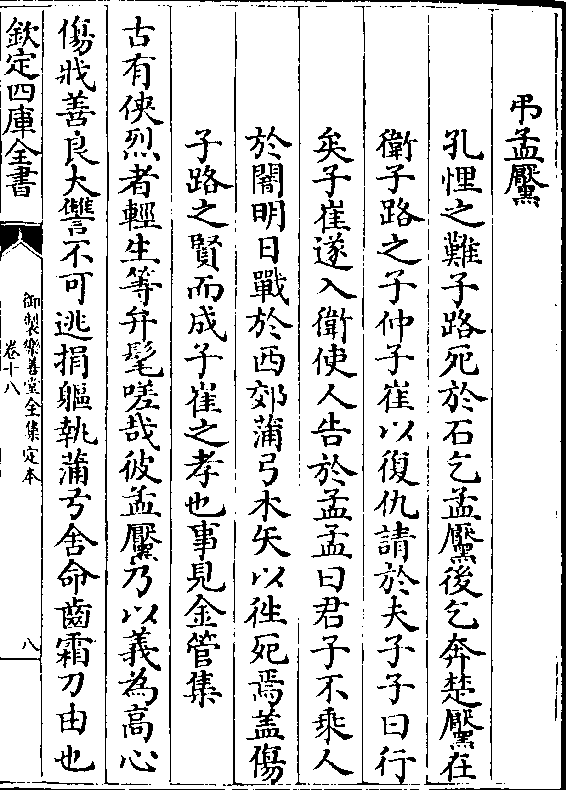 弔孟黶
孔悝之難子路死於石乞孟黶後乞奔楚黶在
衛子路之子仲子崔以復仇請於夫子子曰行
矣子崔遂入衛使人告於孟孟曰君子不乘人
於闇明日戰於西郊蒲弓木矢以徃死焉蓋傷
子路之賢而成子崔之孝也事見金管集
古有俠烈者輕生等弁髦嗟哉彼孟黶乃以義為高心
傷戕善良大讐不可逃捐軀執蒲弓舍命齒霜刀由也
欽定四庫全書
御製樂善堂全集定本
卷十八
八